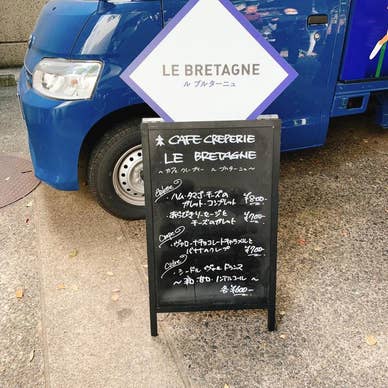 LE BRETAGNE
ル ブルターニュ
CAFE CREPERIE
LE BRETAGNE
~カフェ クレープリー ル ブルターニュ~
・ハム・タマゴ・チーズの
ガレット・コンプレット ¥800-
・あらびきソーセージと
チーズのガレット ¥700-
Crepe
・ヴァローナチョコレートキャラメルと
バナナのクレープ ¥700-
Cidre
・シードル
~辛口・甘口・ノンアルコール~
各¥600-